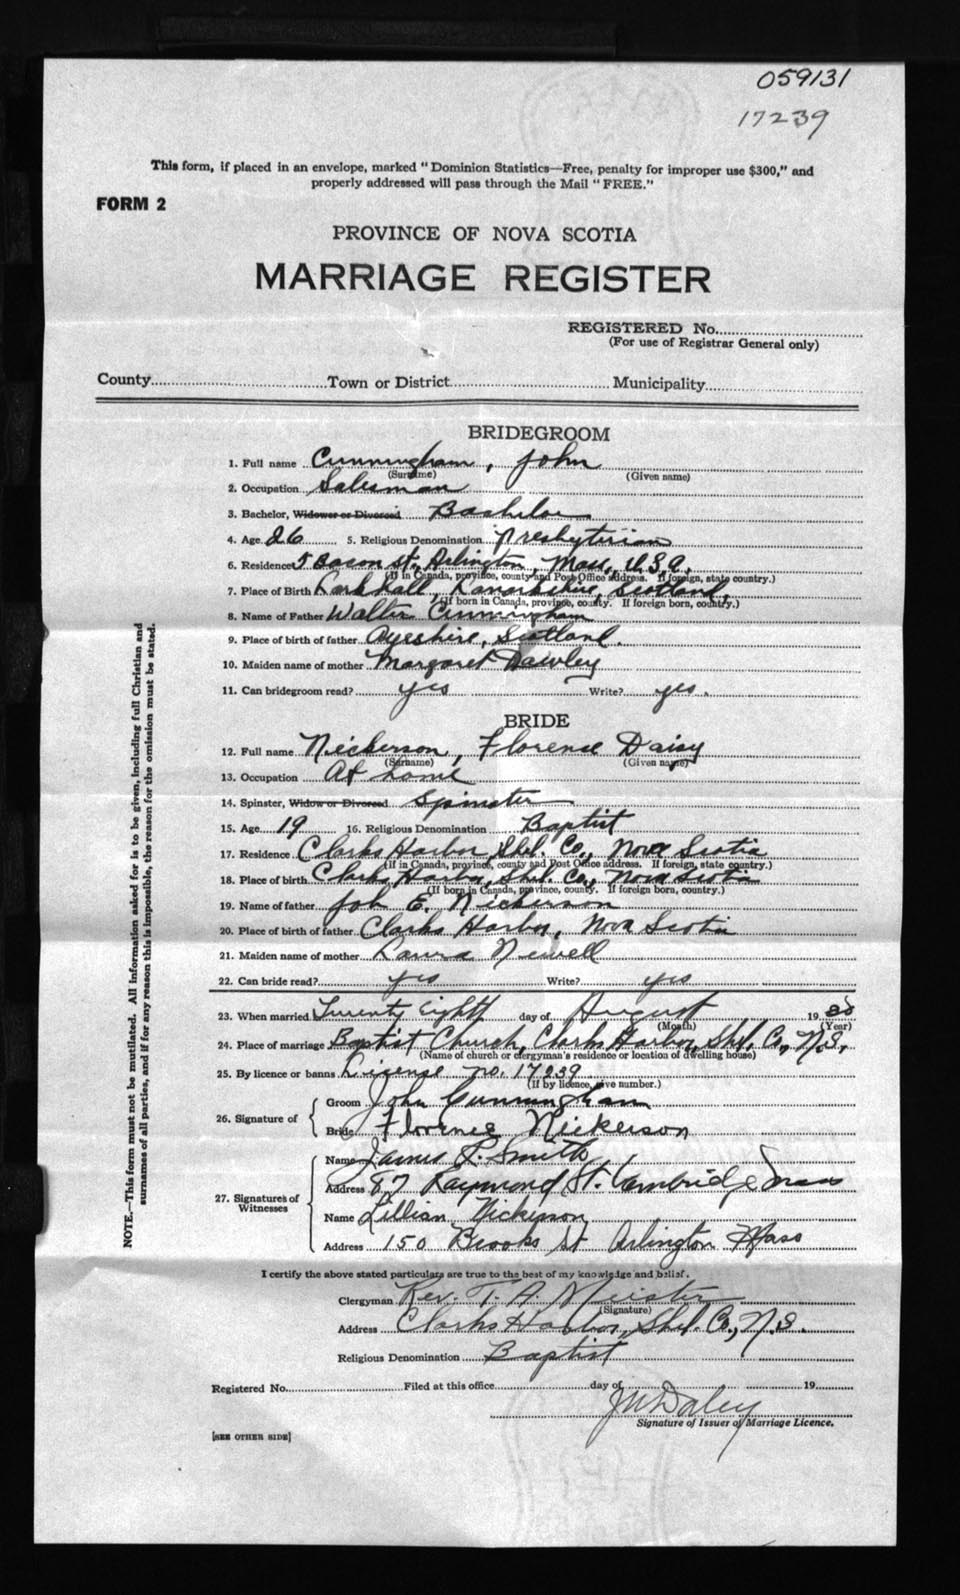 059131
17239
This form, if placed in an envelope, marked "Dominion Statistics—Free, penalty for improper use $300," and
properly addressed will pass through the Mail "FREE."
FORM 2
PROVINCE OF NOVA SCOTIA
MARRIAGE REGISTER
REGISTERED No.
(For use of Registrar General only)
County Town or District Municipality
BRIDEGROOM
1. Full name Cunningham, John
(Surname) (Given name)
2. Occupation Salesman
3. Bachelor, Widower or Divorced Bachelor
4. Age 26 5. Religious Denomination Presbyterian
6. Residence 5 Bacon St., Arlington, Mass., U.S.A.
(If in Canada, province, county and Post Office address. If foreign, state country.)
7. Place of Birth Larkhall, Lanarkshire, Scotland,
(If born in Canada, province, county. If foreign born, country.)
8. Name of Father Walter Cunningham
9. Place of birth of father Ayeshire, Scotland.
10. Maiden name of mother Margaret
11. Can bridegroom read? yes Write? yes.
BRIDE
12. Full name Nickerson, Florence Daisy
(Surname) (Given name)
13. Occupation At home
14. Spinster, Widow or Divorced Spinster
15. Age 19 16. Religious Denomination Baptist
17. Residence Clarks Harbor, Shel. Co., Nova Scotia
(If in Canada, province, county and Post Office address. If foreign, state country.)
18. Place of birth Clarks Harbor, Shel. Co., Nova Scotia
(If born in Canada, province, county. If foreign born, country.)
19. Name of father Job E. Nickerson
20. Place of birth of father Clarks Harbor, Nova Scotia
21. Maiden name of mother Laura Newell
22. Can bride read? yes Write? yes
23. When married Twenty Eighth day of August 19
(Month) (Year)
24. Place of marriage Baptist Church, Clarks Harbor, Shel. Co., N.S.
(Name of church or clergyman's residence or location of dwelling house)
25. By licence or banns License no. 17239
(If by licence, give number.)
26. Signature of Groom John Cunningham
Bride Florence Nickerson
27. Signatures of Witnesses Name James R. Smith
Address 87 Raymond St. Cambridge Mass
Name Lillian Nickerson
Address 150 Brooks St Arlington Mass
I certify the above stated particulars are true to the best of my knowledge and belief.
Clergyman Rev. T. A. Meister
(Signature)
Address Clarks Harbor, Shel. Co., N.S.
Religious Denomination Baptist
Registered No. Filed at this office day of 19
Daley
Signature of Issuer of Marriage Licence.
[SEE OTHER SIDE]
NOTE.—This form must not be mutilated. All information asked for is to be given, including full Christian and
surnames of all parties, and if for any reason this is impossible, the reason for the omission must be stated.